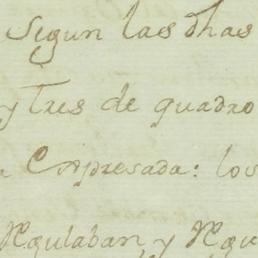 Segun las dhas
y tres de quadro
Expresada: los
Regulaban, y Regu